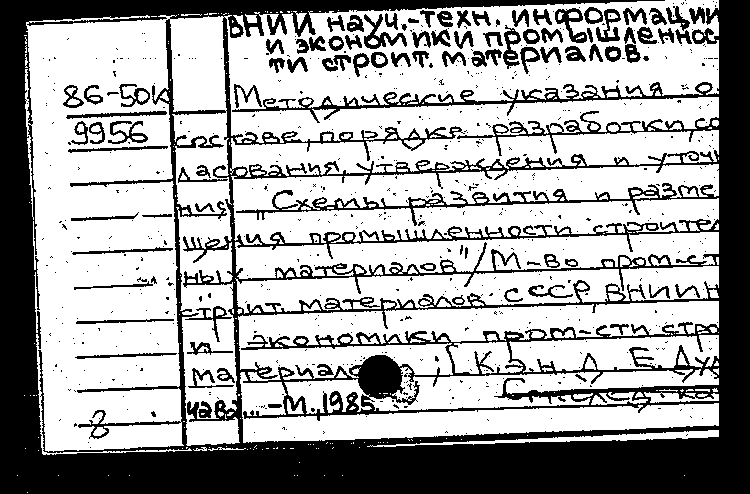 ВНИИ науч.-техн. информации
и экономики промышленнос-
ти строит. материалов.
86-50к Методические указания о
9956 составе, порядке разработки, со
ласования, утверждения и уточ
ния „Схемы развития и разме
щения промышленности строител
ных материалов"/М-во пром-ст
строит. материалов СССР, ВНИИН
и экономики пром-сти стро
материалов ; [К.э.н. Д. Е. Ду
чава... -М., 1985.
8